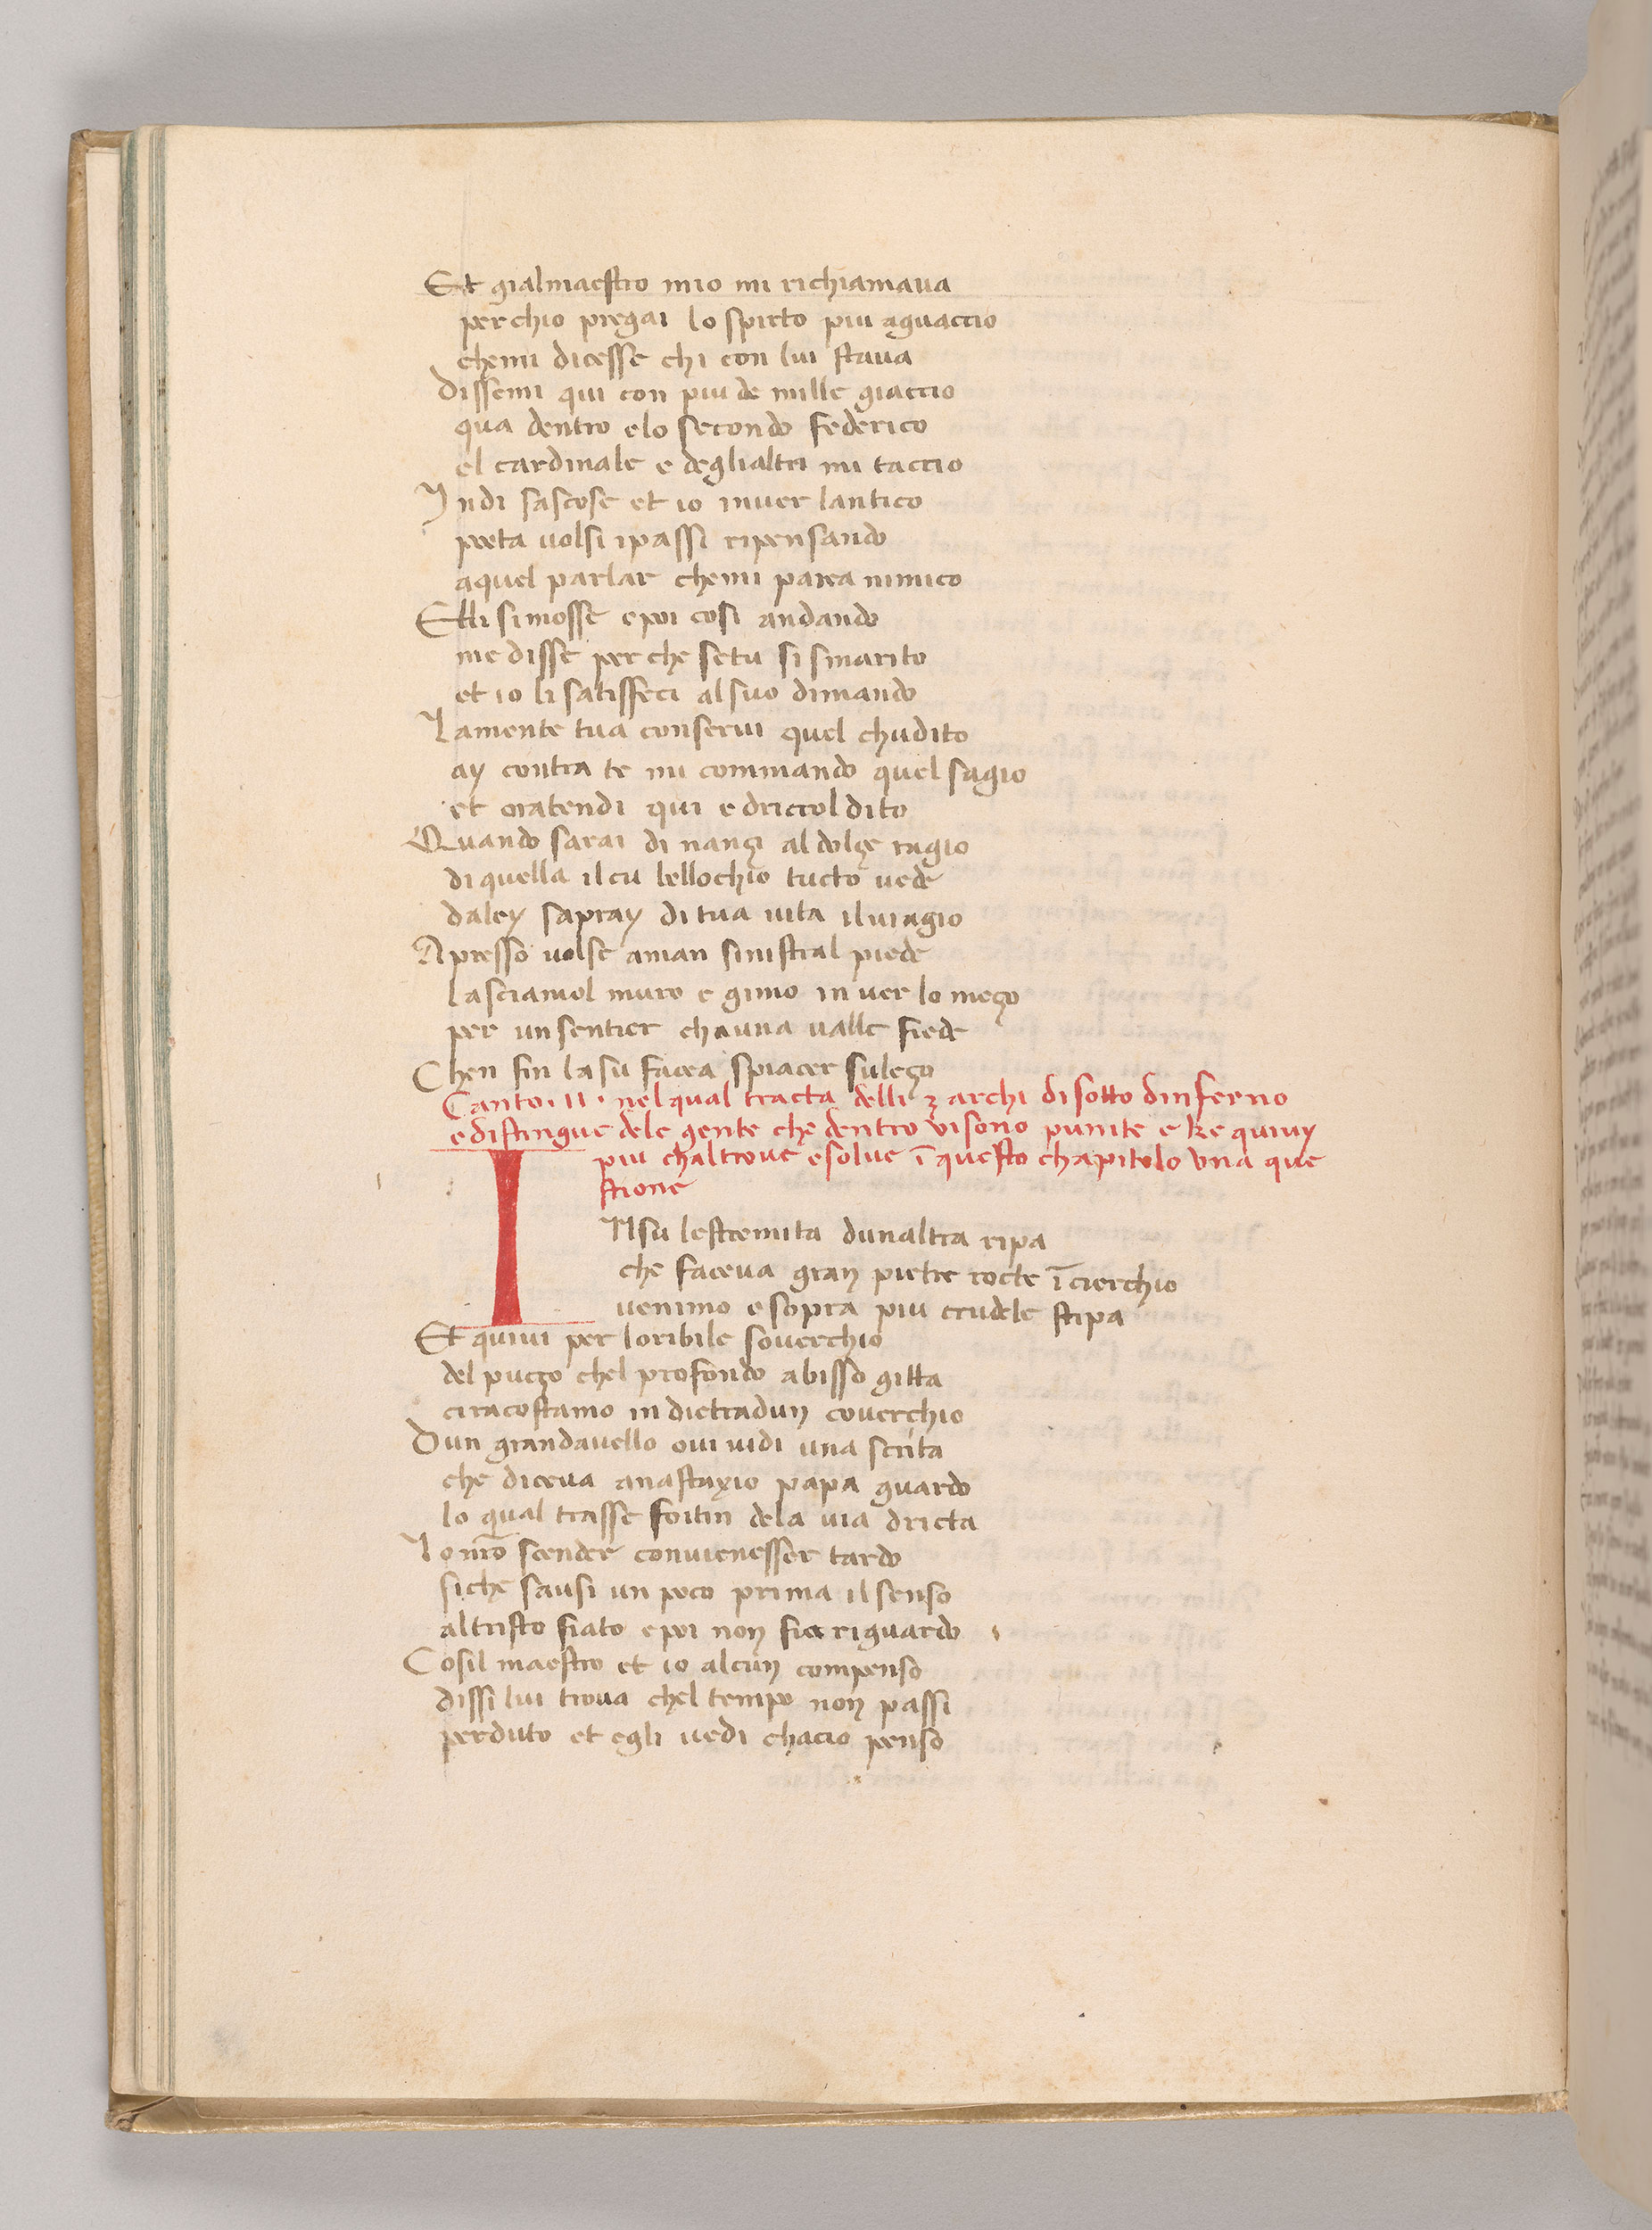 Et gialmaestro mio mi richiamaua
perchio pregai lo spirto piu aguaccio
chemi dicesse chi con lui staua
Dissemi qui con piu de mille giaccio
qua dentro elo secondo federico
el cardinale e deglialtri mi taccio
Indi sascose et io inuer lantico
poeta uolsi ipassi ripensando
aquel parlar chemi parea nimico
Elli simosse epoi cosi andando
me disse per che setu si smarito
et io li satisfeci alsuo dimando
Lamente tua conserui quel chudito
ay contra te mi commando quel sagio
et oratendi qui e driccol dito
Quando sarai di nançi al dolçe ragio
di quella il cu bellochio tucto uede
daley sapray di tua uita iluiagio
Apresso uolse aman sinistral piede
lasciamol muro e gimo in uer lo meço
per unsentier chauna ualle fiede
Chen fin lasu facea spiacer suleço
Canto · 11 · nel qual tracta delli 3 archi di sotto dinferno
e distingue dele gente che dentro visono punite e ke quiuy
piu chaltroue esolue ī questo chapitolo vna que
stione
INsu lestremita dunaltra ripa
che faceua gran pietre rocte ī cierchio
uenimo esopra piu crudele stipa
Et quiui per loribile souerchio
del puçço chel profondo abisso gitta
ciracostamo indietradun couerchio
Dun grandauello oui uidi una scrita
che diceua anastaxio papa guardo
lo qual trasse foitin dela uia dricta
Lo nr̄o scender conuienesser tardo
siche sausi un poco prima ilsenso
altristo fiato epoi non fia riguardo
Cosil maestro et io alcun compenso
dissi lui troua chel tempo non passi
perduto et egli uedi chacio penso